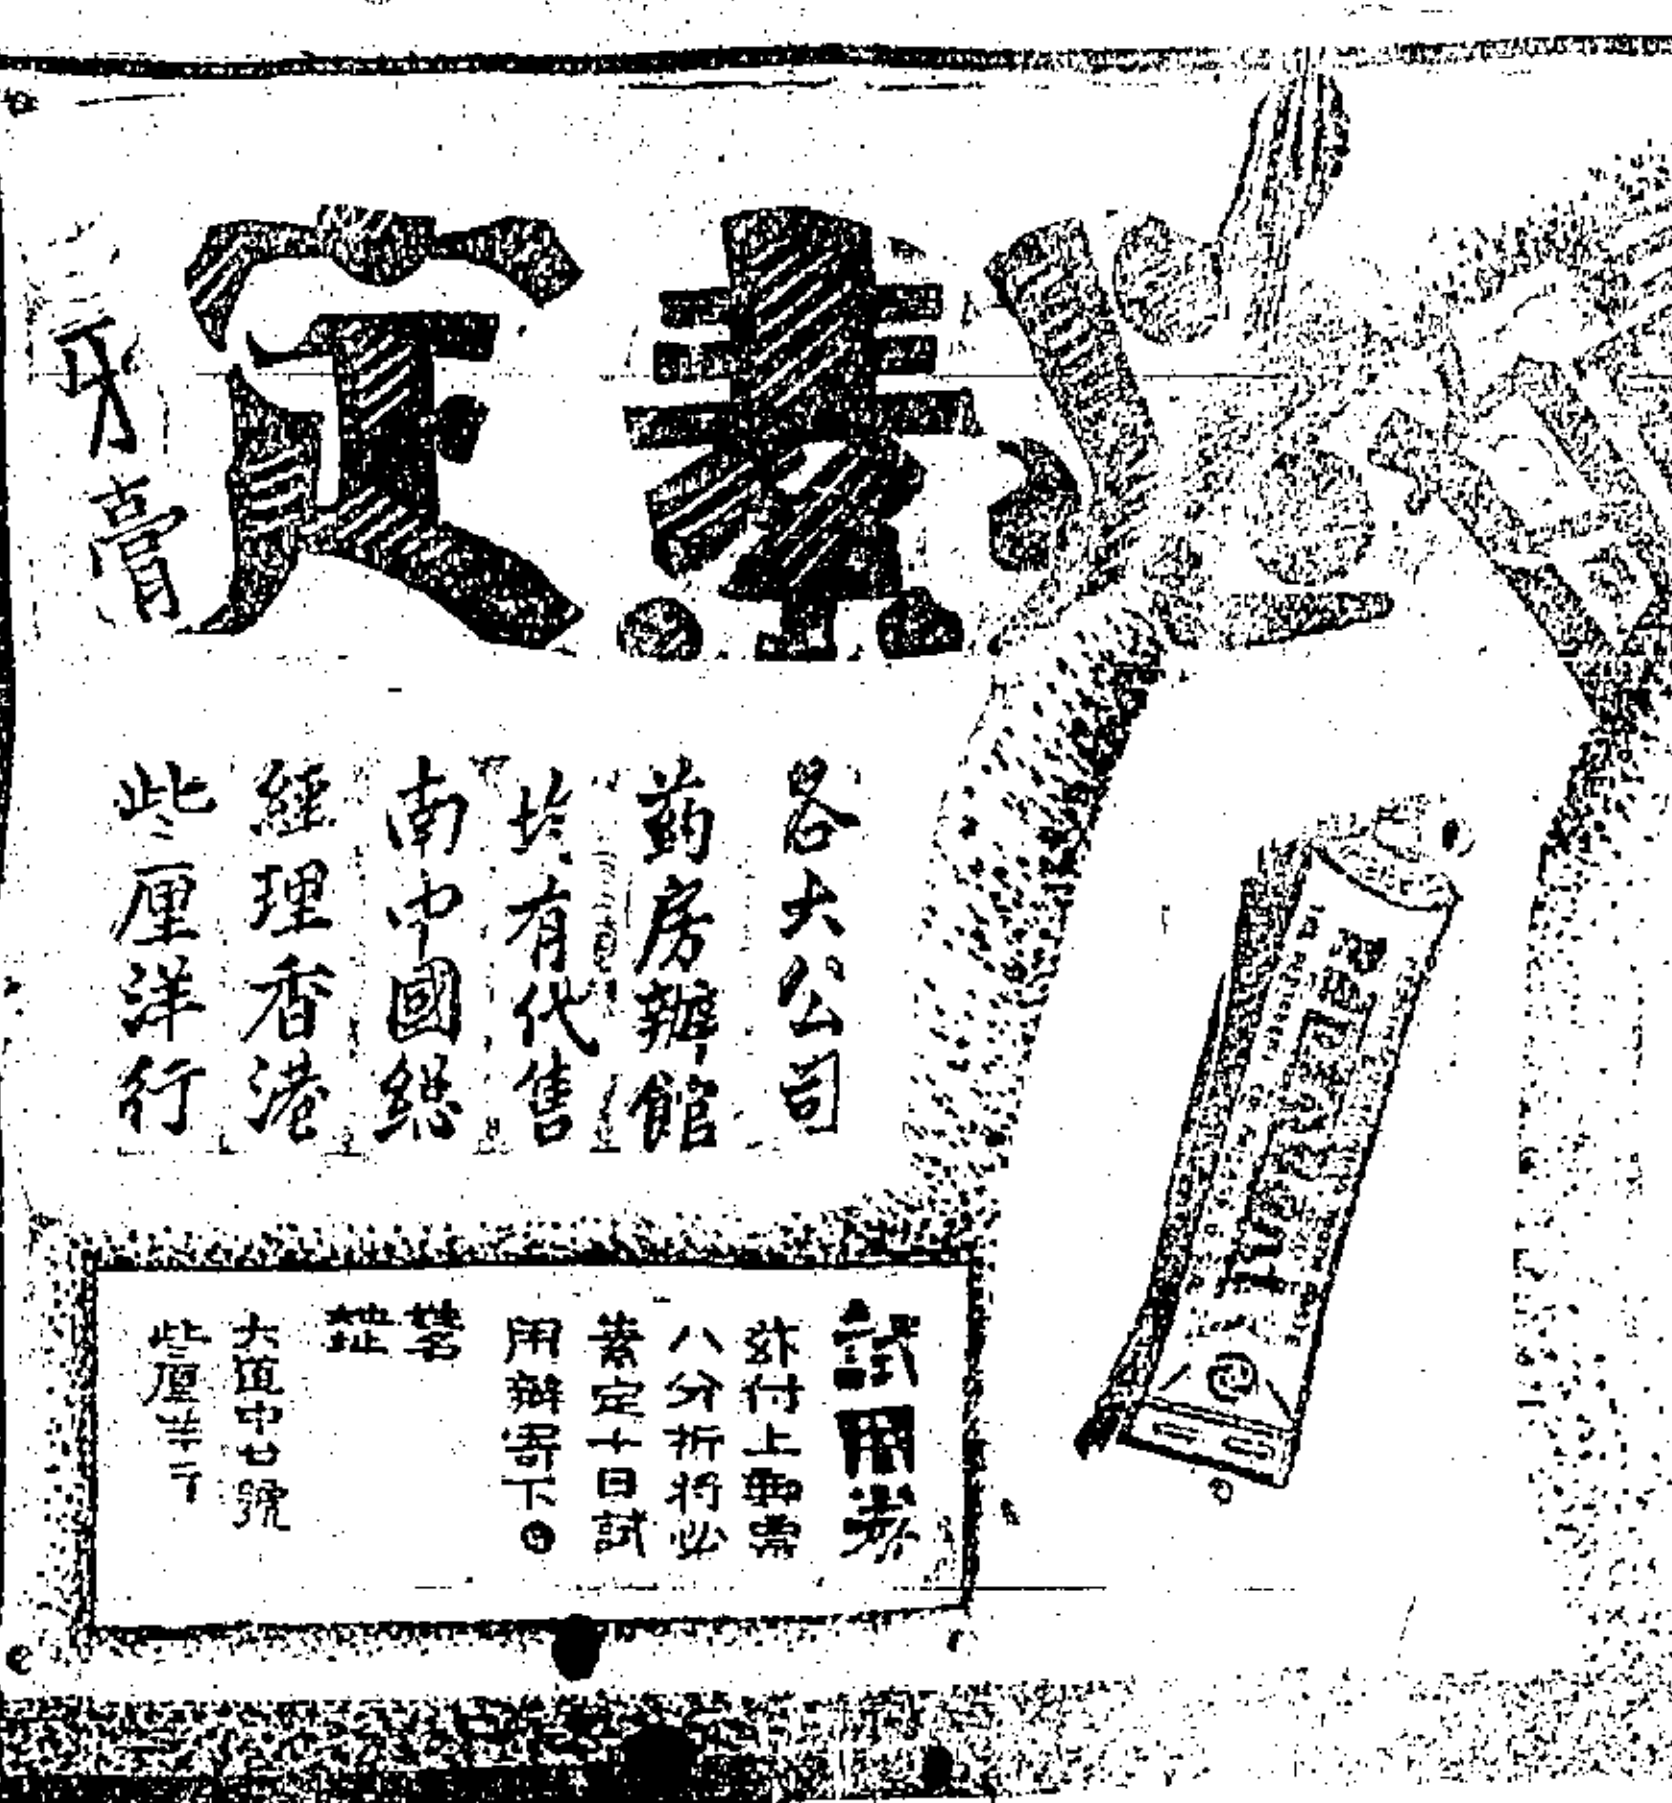 必素定
牙膏
各大公司
葯房辦館
均有代售
南中國總
經理香港
些厘洋行
試用券
茲付上郵票
八分祈將必
素定十日試
用辦寄下
姓名
地址
大道中廿號
些厘洋行